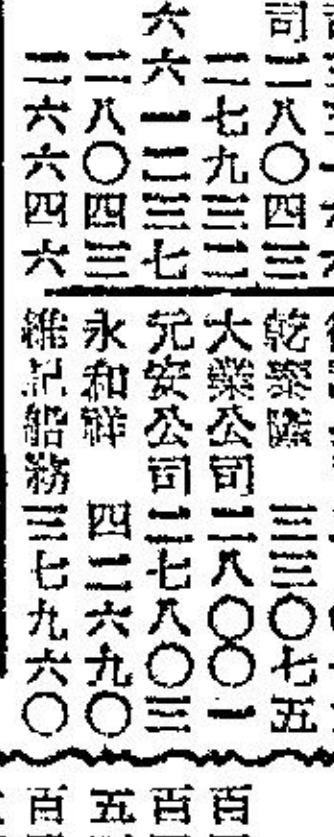 司二八〇四三
二七九三二
六六一二三七
二八〇四三
二六六四六
乾泰隆 三三〇七五
大業公司 二八〇〇一
元安公司 二七八〇三
永和祥 四二六九〇
維記船務 三七九六〇
百
百
五
百